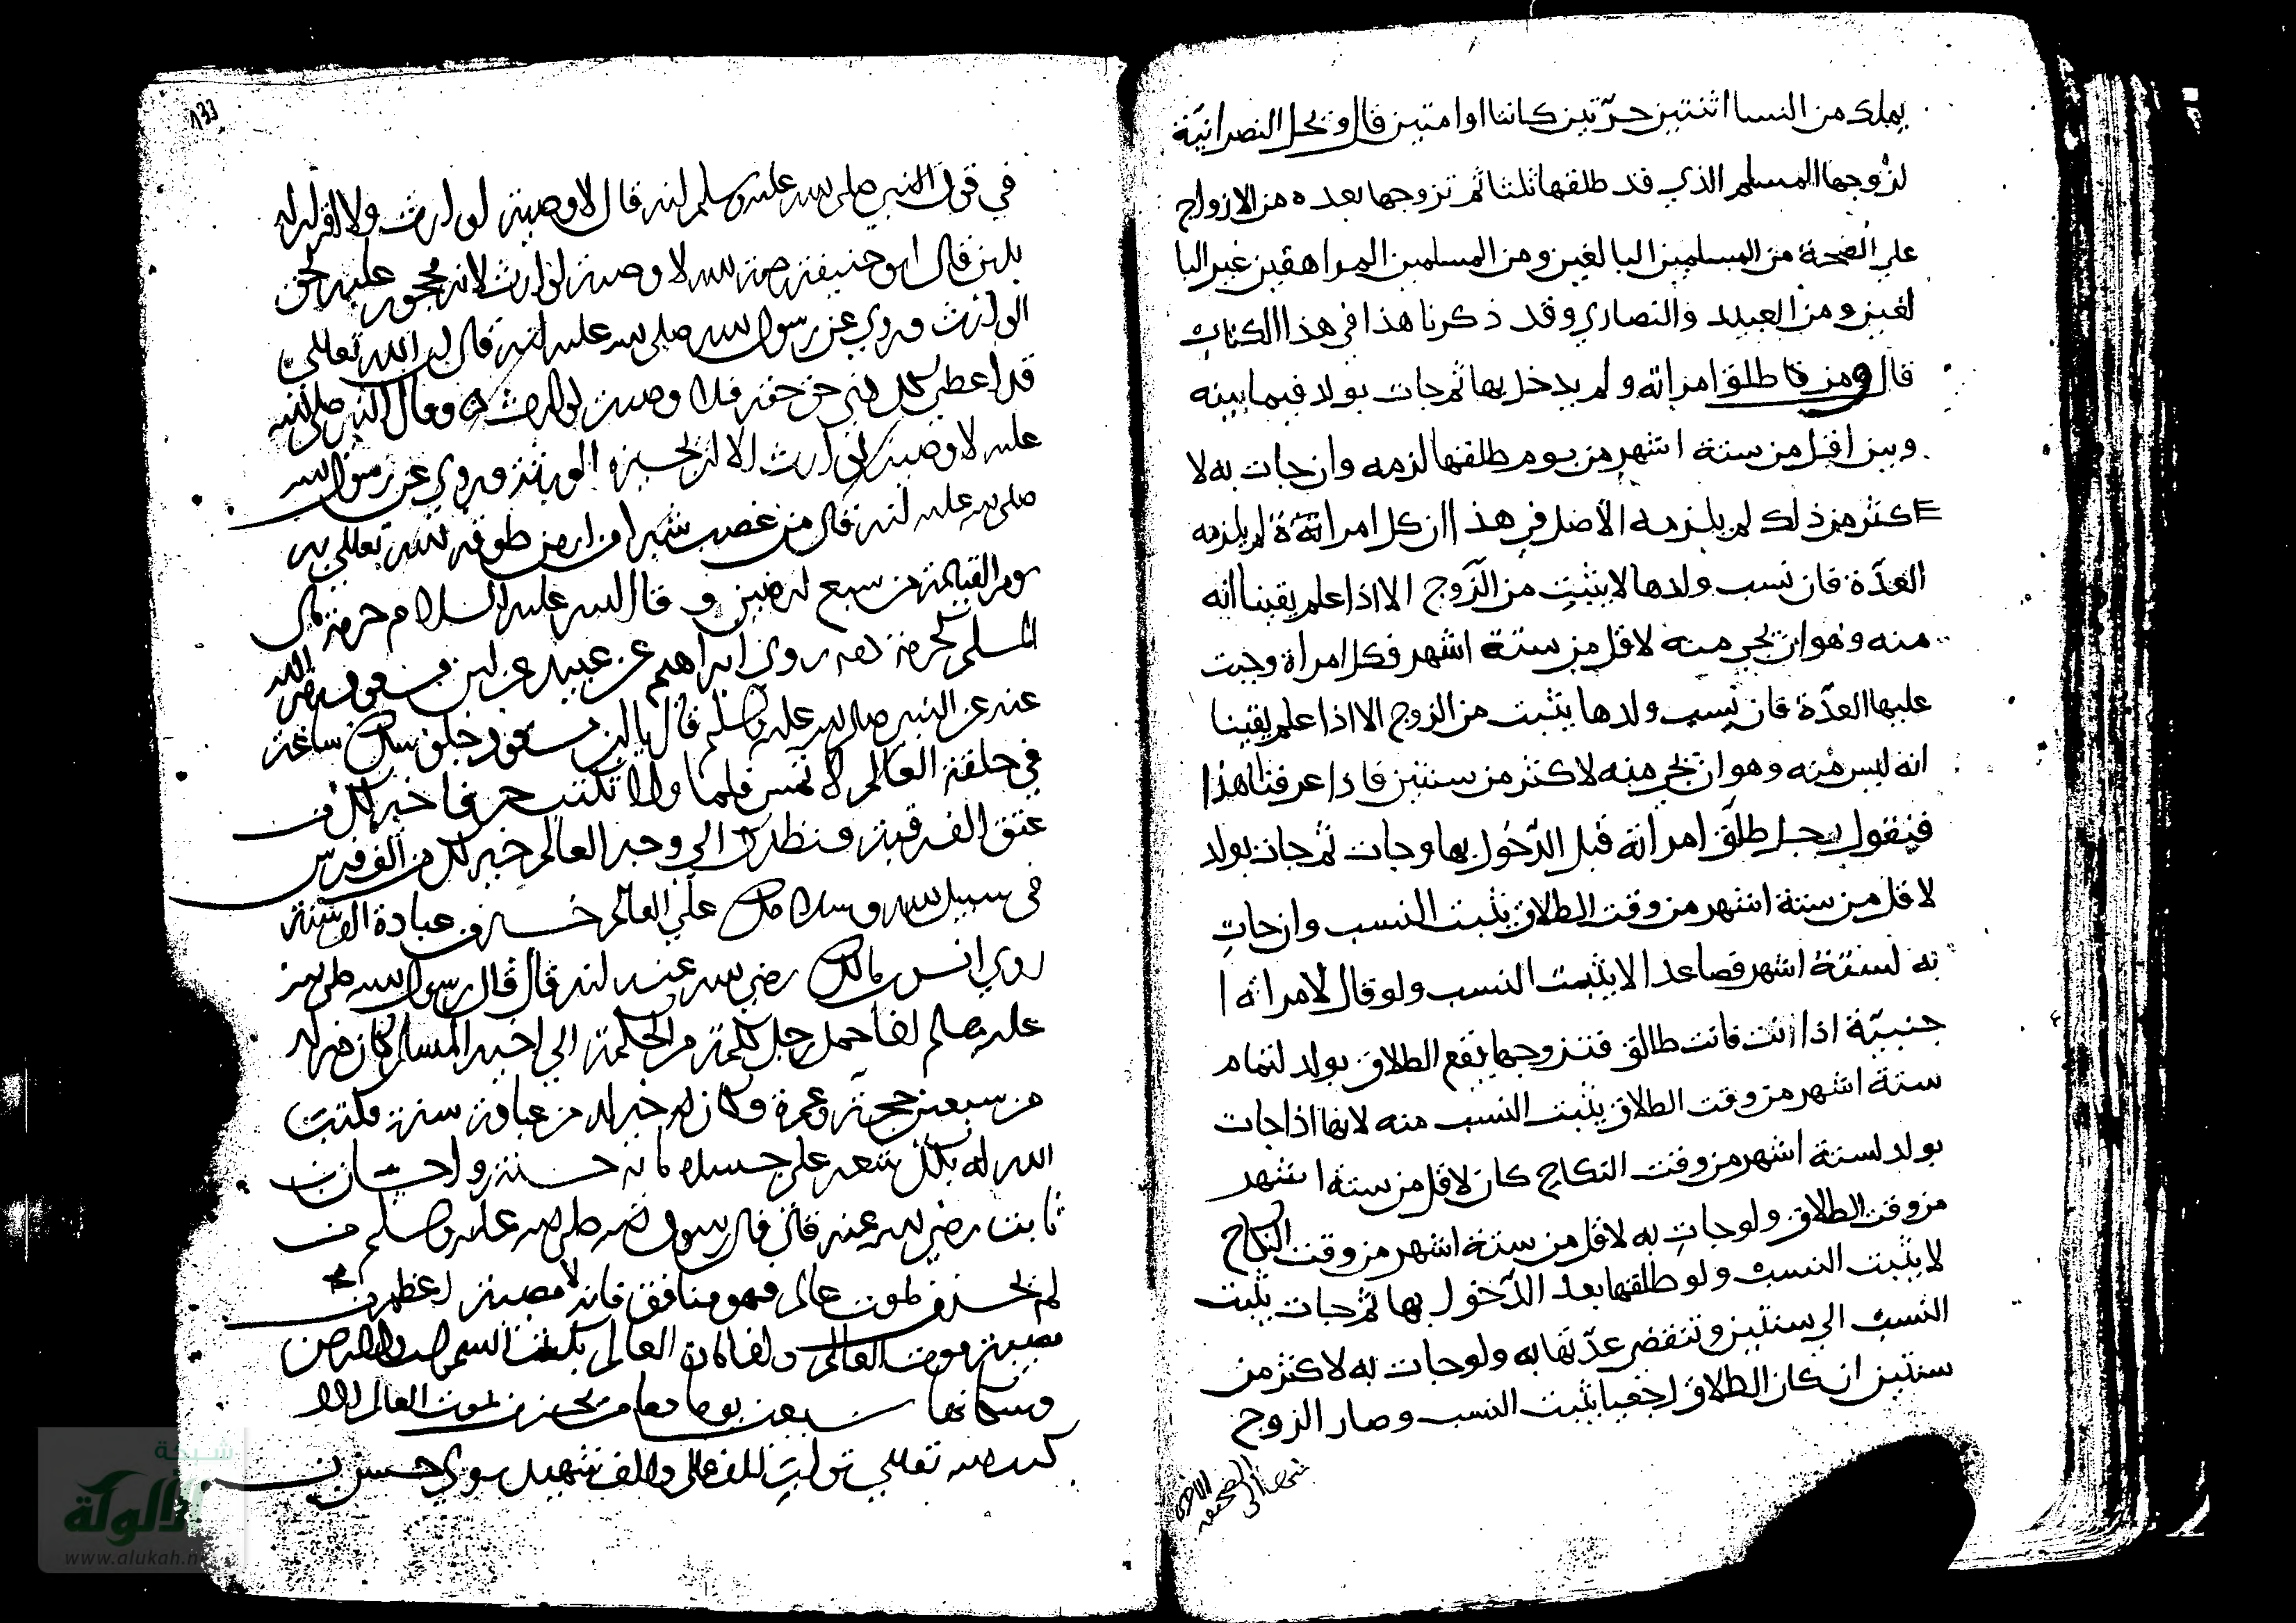 يملك من النسا اثنتين حرّتين كانتا او امتين قال و يحل النصرانيّة
لزوجها المسلم الذي قد طلقها ثلثا ثم تزوجها بعده من الازواج
علي الصحة من المسلمين البالغين ومن المسلمين المراهقين غير البا
لغين و من العبيد والنصاري وقد ذكرنا هذا في هذا الكتاب
قال ومن طلق امراته و لم يدخل بها ثم جات بولد فيما بينه
و بين اقل من ستة اشهر من يوم طلقها لزمه وان جات به لا
كثر من ذلك لم يلزمه الاصل في هذا ان كل امراة لم يلزمه
العدّة فان نسب ولدها لا يثبت من الزّوج الا اذا علم يقينا انه
منه و هو ان يجي منه لاقل من ستة اشهر فكل امراة وجبت
عليها العدّة فان نسب ولدها يثبت من الزوج الا اذا علم يقينا
انه ليس منه و هو ان يجي منه لاكثر من سنتين فاذا عرفنا هذا
فنقول رجل طلّق امراته قبل الدّخول بها وجات ثم جات بولد
لاقل من ستة اشهر من وقت الطلاق يثبت النسب وان جات
به لستة اشهر فصاعدا لا يثبت النسب ولو قال لامراته ا
جنبيّة اذا انت فانت طالق فتزوجها يقع الطلاق بولد لتمام
ستة اشهر من وقت الطلاق يثبت النسب منه لانها اذا جات
بولد لستة اشهر من وقت النكاح كان لاقل من ستة اشهر
من وقت الطلاق ولو جات به لاقل من ستة اشهر من وقت النكاح
لا يثبت النسب ولو طلقها بعد الدّخول بها ثم جات يثبت
النسب الي سنتين و تنقضي عدّتها به ولو جات به لاكثر من
سنتين ان كان الطلاق رجعيا يثبت النسب و صار الزوج
الي الصحيفة الاخرى
133
في قول النبي صلى الله عليه وسلم انه قال لا وصية لوارث ولا اقرار له
بدين قال ابو حنيفة لا وصية لوارث لانه محجور عليه لحق
الوارث وروي عن رسول الله صلى الله عليه انه قال ان الله تعالي
قد اعطي كل ذي حق حقه فلا وصية لوارث وقال النبي صلى الله
عليه لا وصية لوارث الا ان يجيزه الورثة وروي عن رسول الله
صلى الله عليه انه قال من غصب شبرا من ارض طوقه الله تعالي به
يوم القيامة من سبع ارضين و قال عليه السلام حرمة مال
المسلم كحرمة دمه روي ابراهيم عن عبيد عن ابن مسعود رضي الله
عنه عن النبي صلى الله عليه وسلم قال يا ابن مسعود جلوسك ساعة
في حلقة العالم لا تمس قلما ولا تكتب حرفا خير لك من
عتق الف رقبة و نظرك الي وجه العالم خير لك من الف فرس
في سبيل الله و سلامك علي العالم خير من عبادة الف سنة
روي انس بن مالك رضي الله عنه انه قال قال رسول الله صلى الله
عليه وسلم اذا حمل رجل كلمة من الحكمة الي اخيه المسلم كان خير له
من سبعين حجة و عمرة و كان خير له من عبادة سنة و كتبت
الله له بكل شعر علي جسده مائة حسنة
ثابت رضي الله عنه قال قال رسول الله صلى الله عليه وسلم من
لم يحزن لموت عالم فهو منافق فانه لا مصيبة اعظم من
مصيبة موت العالم و اذا مات العالم بكت السموات والارض
و سكانها سبعين يوما و ما من يحزن لموت العالم الا
كتب الله تعالي ثواب الف عالم والف شهيد
شبكة
الالوكة
www.alukah.n